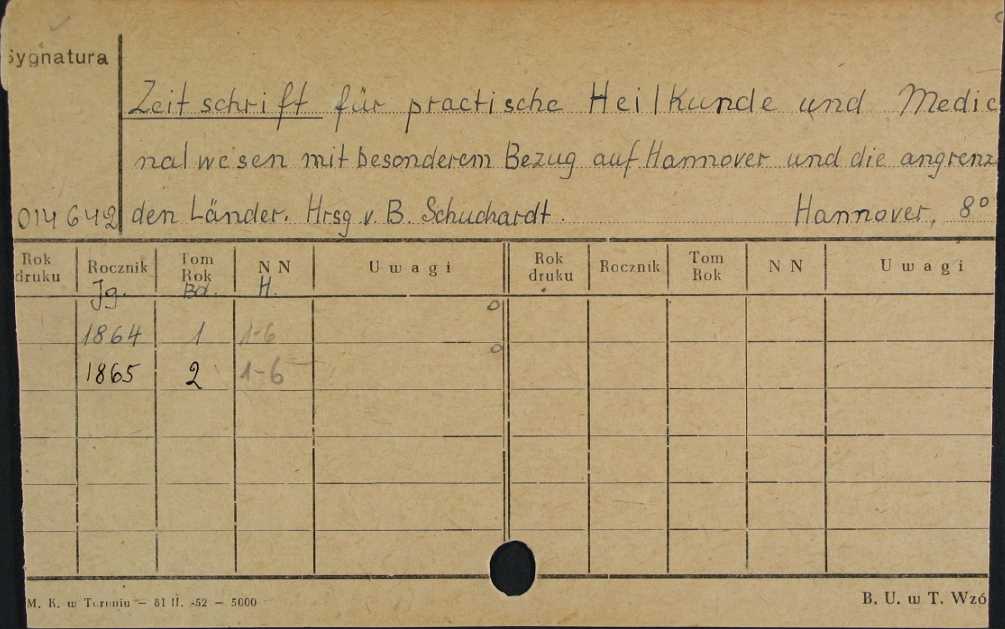 Sygnatura
Zeitschrift für practische Heilkunde und Medic
nalwesen mit besonderem Bezug auf Hannover und die angrenz
014642 den Länder. Hrsg v. B. Schuchardt. Hannover, 8°
Rok druku Rocznik Tom Rok NN Uwagi Rok druku Rocznik Tom Rok NN Uwagi
Jg. Bd. H.
1864 1 1-6
1865 2 1-6
M. K. w Toruniu — 81 II. -52 — 5000 B. U. w T. Wzó